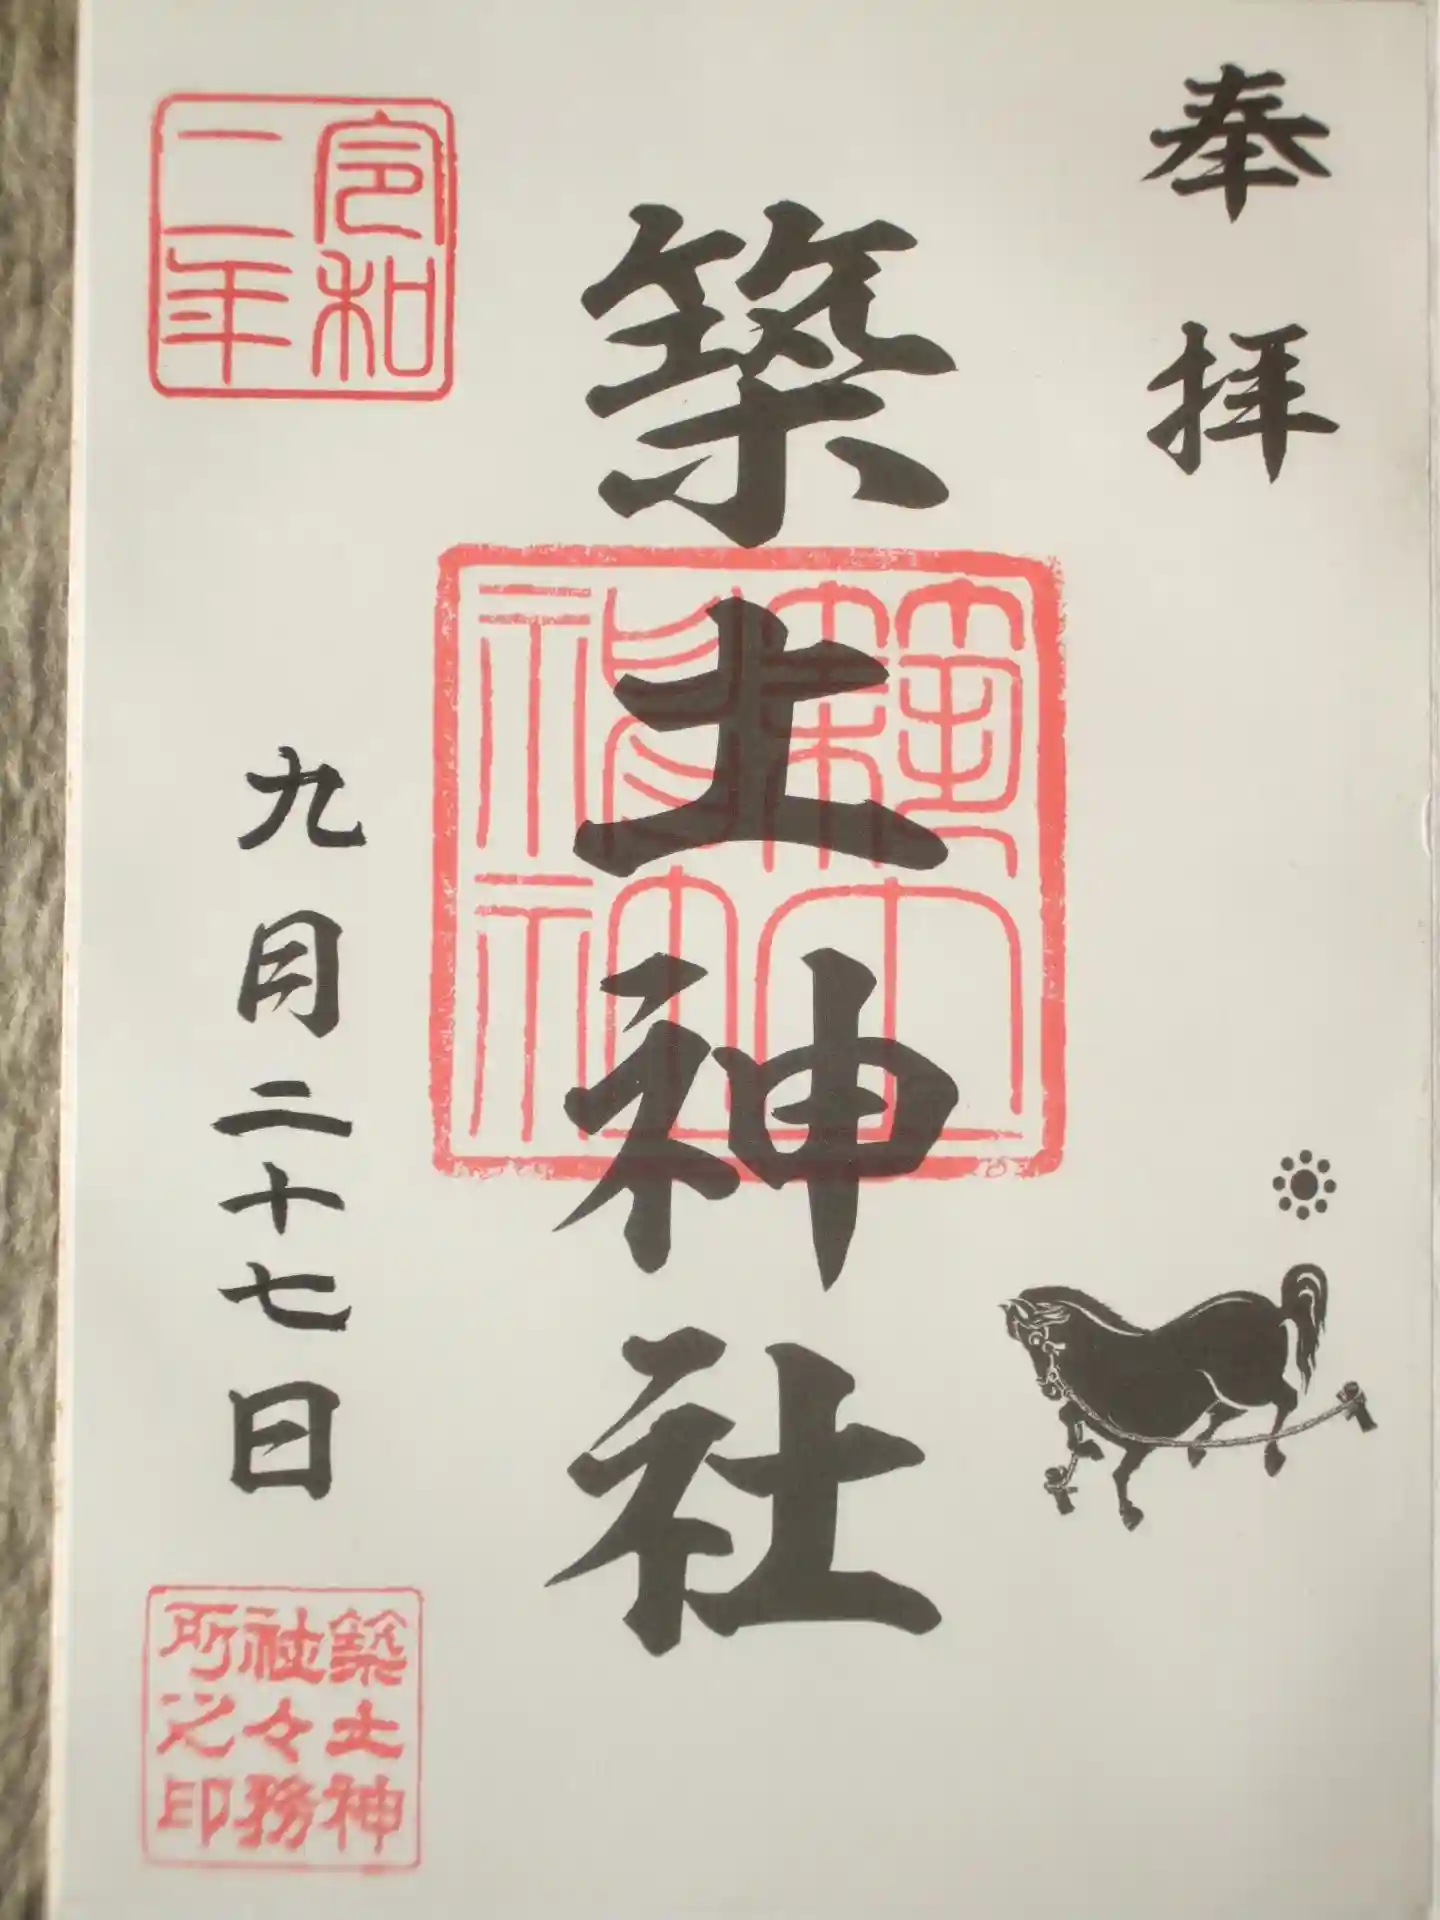 奉拝
築土神社
築土
神社
令和
二年
九月二十七日
築土神
社々務
所之印